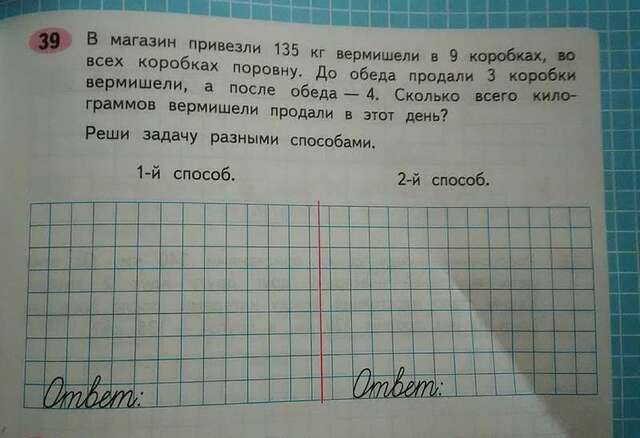 39 В магазин привезли 135 кг вермишели в 9 коробках, во
всех коробках поровну. До обеда продали 3 коробки
вермишели, а после обеда — 4. Сколько всего кило-
граммов вермишели продали в этот день?
Реши задачу разными способами.
1-й способ. 2-й способ.
Ответ: Ответ: